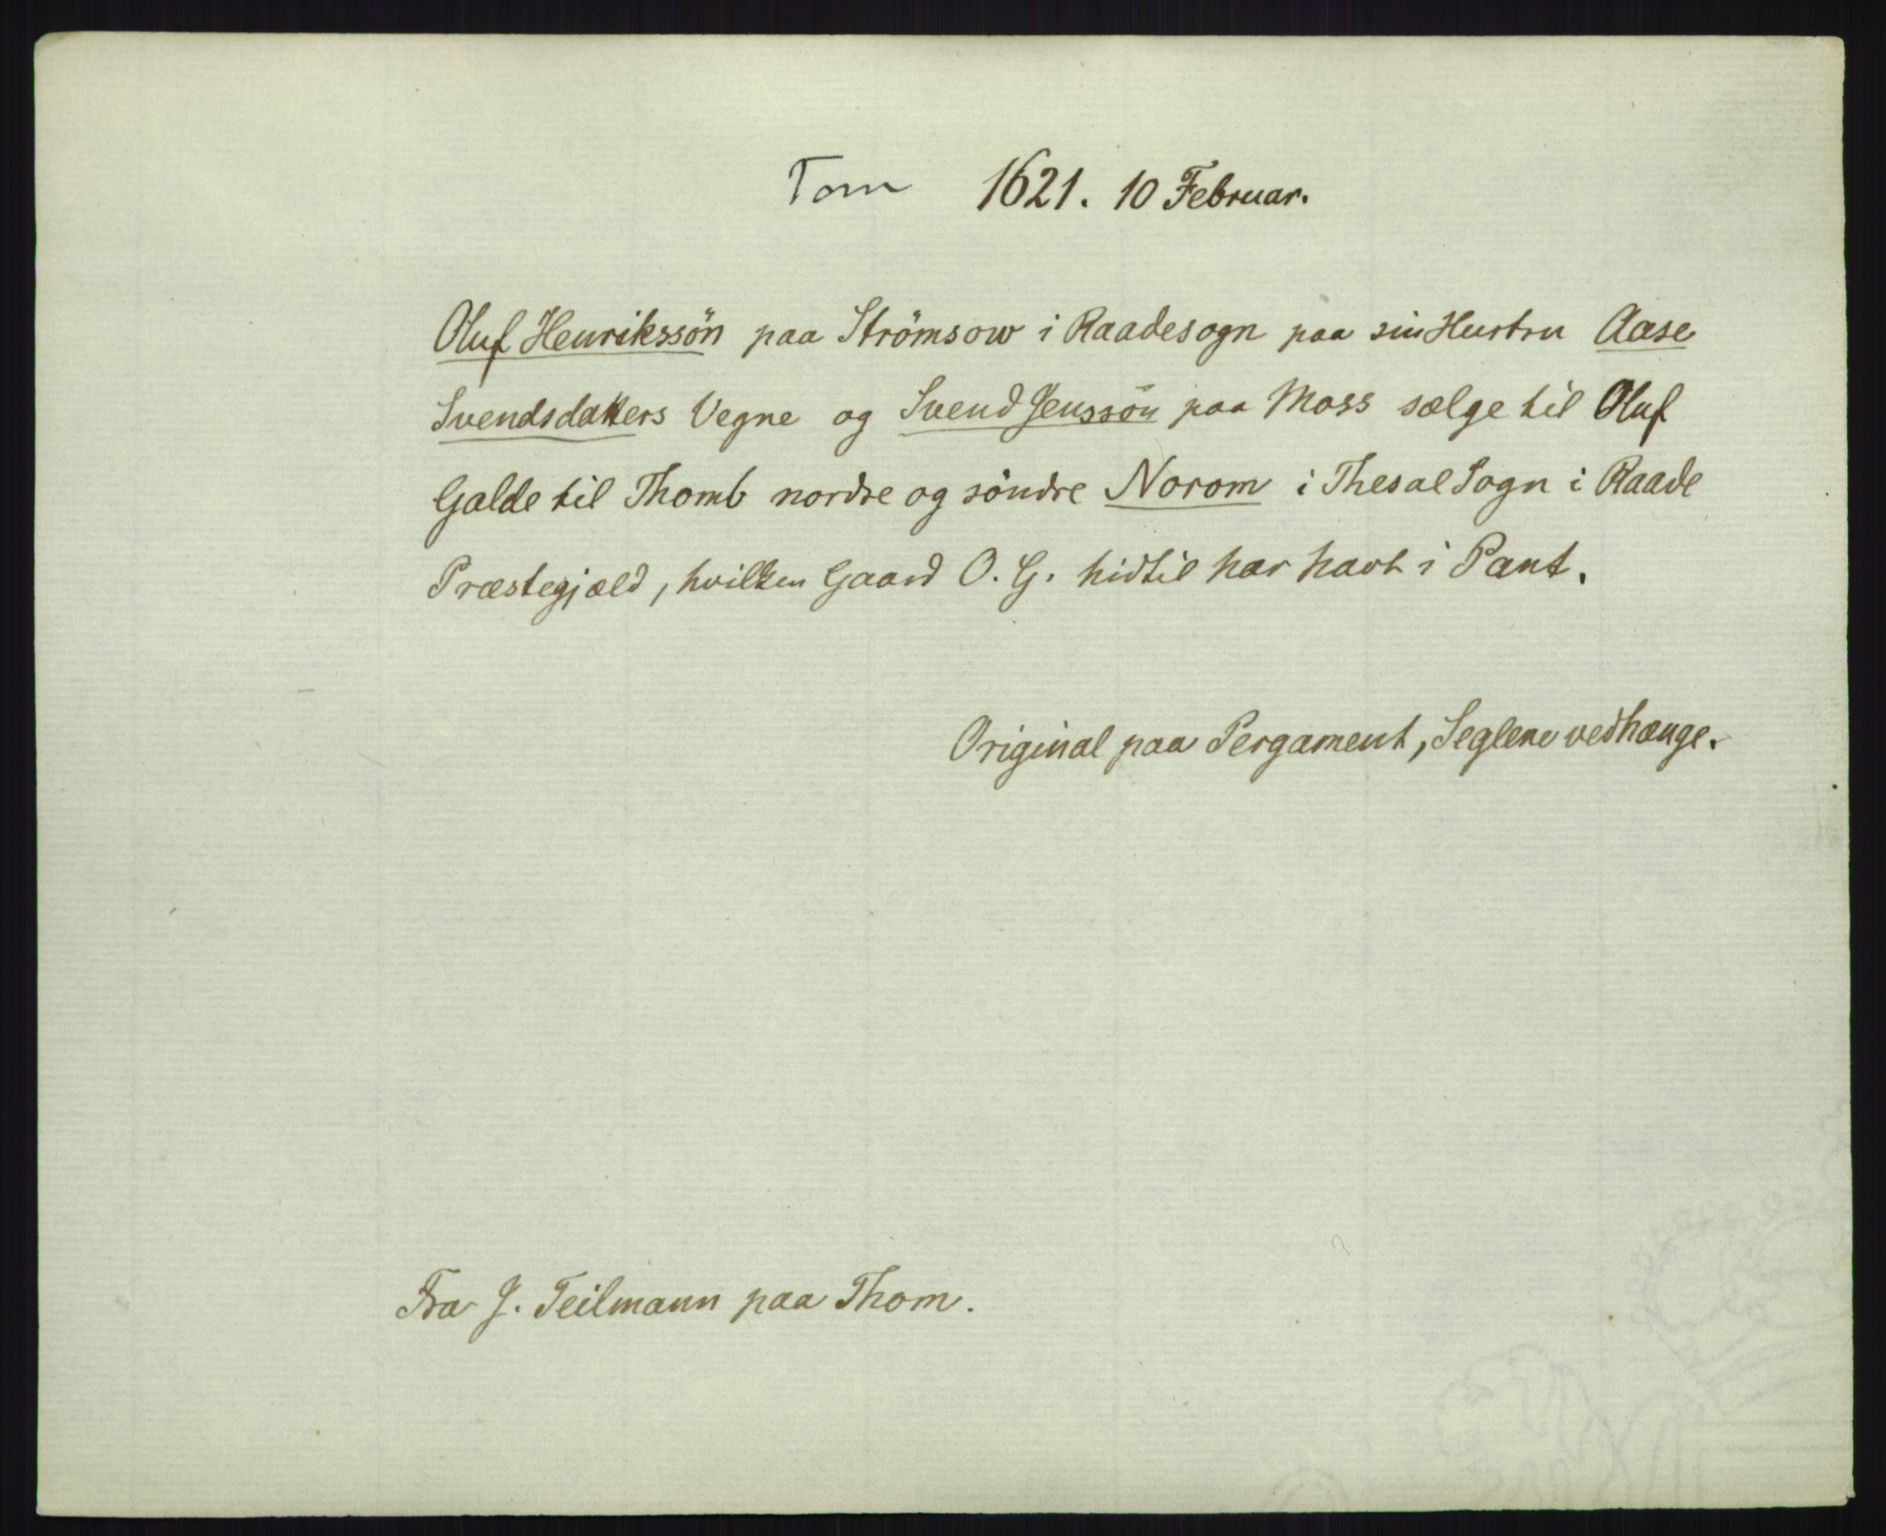 Tom 1621. 10 Februar.
Oluf Henrikssön paa Strömsow i Raadesogn paa sin Hustru Aase
Svendsdatters Vegne og Svend Jenssön paa Moss sælge til Oluf
Galde til Thomb nordre og söndre Norom i Thesal Sogn i Raade
Præstegjæld, hvilken Gaard O. G. hidtil har havt i Pant.
Original paa Pergament, Seglene vedhænge.
Fra J. Teilmann paa Thom.